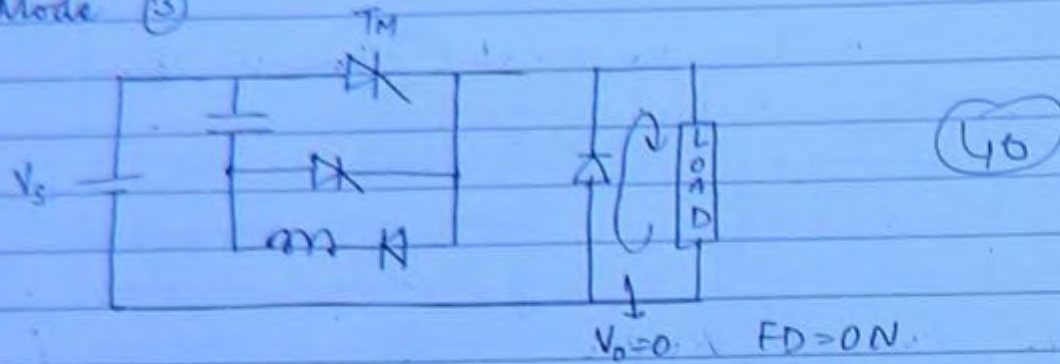 Mode ③
TM
Vs
LOAD
40
V₀=0. FD=ON.